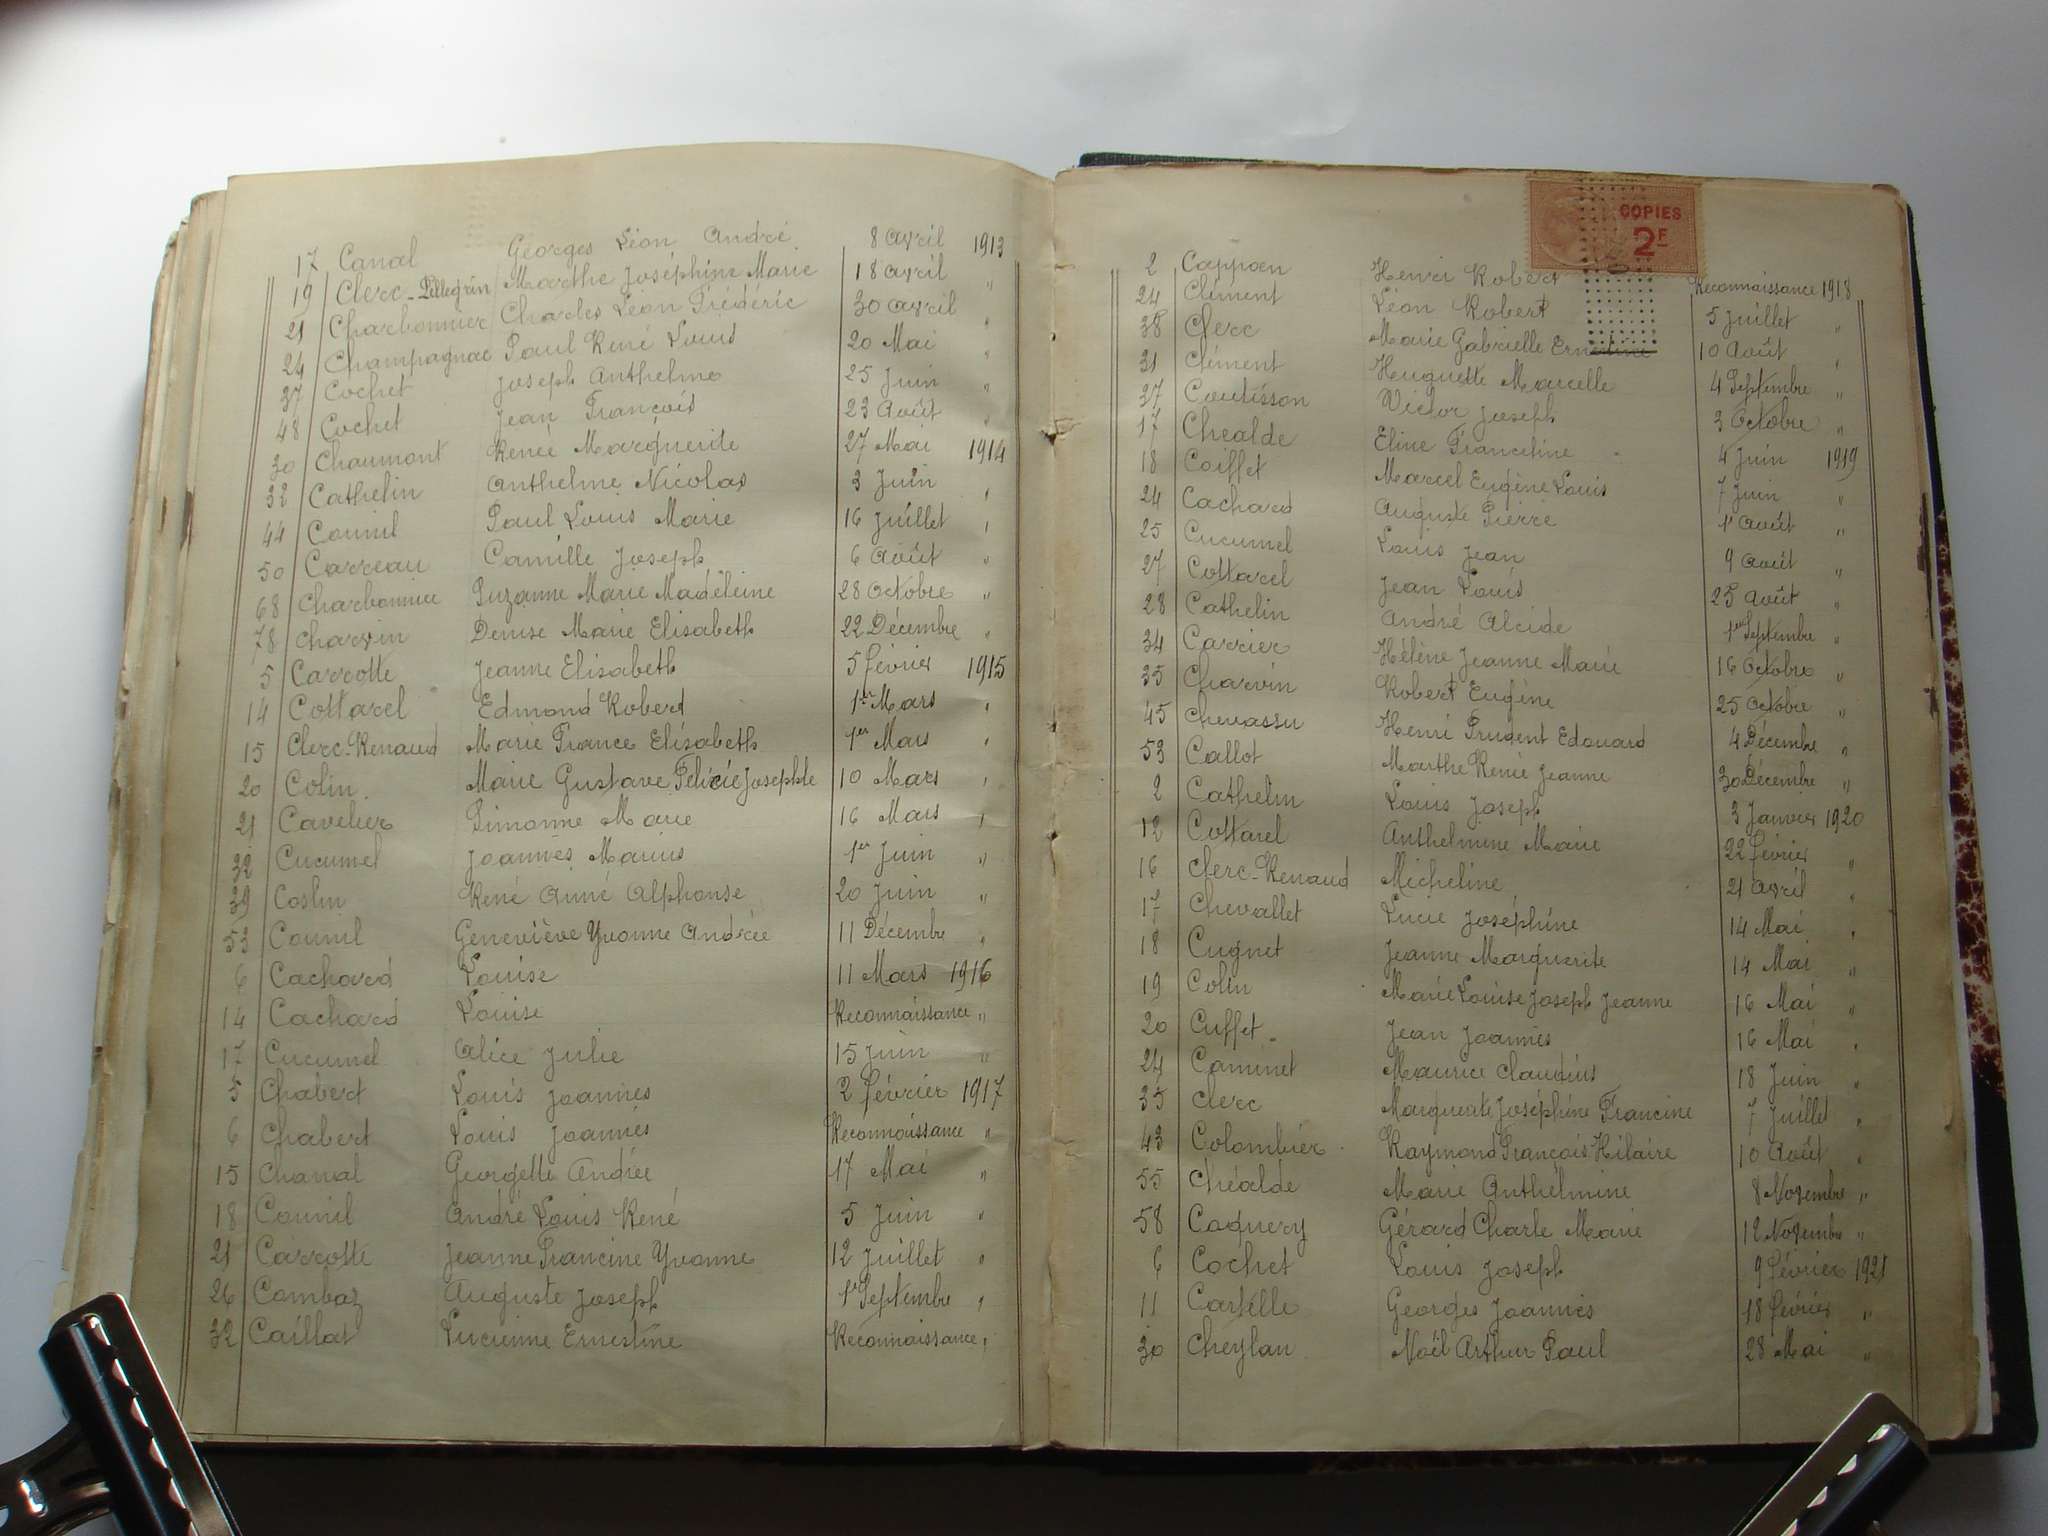 17 Canal Georges Léon André 8 avril 1913
19 Clerc-Pellegrin Marthe Joséphine Marie 18 avril "
21 Charbonnier Charles Léon Frédéric 30 avril "
24 Champagnac Paul René Louis 20 Mai "
37 Cochet Joseph Anthelme 25 Juin "
48 Cochet Jean François 23 Août "
30 Chaumont Renée Marguerite 27 Mai 1914
32 Cathelin Anthelme Nicolas 3 Juin "
44 Counil Paul Louis Marie 16 Juillet "
50 Carreau Camille Joseph 6 Août "
68 Charbonnier Suzanne Marie Madeleine 28 Octobre "
78 Charvin Denise Marie Elisabeth 22 Décembre "
5 Carrotte Jeanne Elisabeth 5 février 1915
14 Cottarel Edmond Robert 1er Mars "
15 Clerc-Renaud Marie France Elisabeth 1er Mars "
20 Colin Marie Gustave Félicie Josephte 10 Mars "
21 Cavelier Simonne Marie 16 Mars "
32 Cucumel Joannès Marius 1er Juin "
39 Coslin René Aimé Alphonse 20 Juin "
53 Counil Geneviève Yvonne Andrée 11 Décembre "
6 Cachard Louise 11 Mars 1916
14 Cachard Louise Reconnaissance "
17 Cucumel Alice Julie 15 Juin "
5 Chabert Louis Joannès 2 février 1917
6 Chabert Louis Joannès Reconnaissance "
15 Chanal Georgette Andrée 17 Mai "
18 Counil André Louis René 5 Juin "
21 Carrotte Jeanne Francine Yvonne 12 Juillet "
26 Combaz Auguste Joseph 1er Septembre "
32 Caillat Lucienne Ernestine Reconnaissance "
COPIES
2F
2 Cappoen Henri Robert Reconnaissance 1918
24 Clément Léon Robert 5 Juillet "
38 Clerc Marie Gabrielle Ernestine 10 Août "
31 Clément Huguette Marcelle 4 Septembre "
37 Coutisson Victor Joseph 3 Octobre "
17 Chealde Eline Franceline 4 Juin 1919
18 Coiffet Marcel Eugène Louis 7 Juin "
24 Cachard Auguste Pierre 1er Août "
25 Cucumel Louis Jean 9 Août "
27 Cottarel Jean Louis 25 Août "
28 Cathelin André Alcide 1er Septembre "
34 Carrier Hélène Jeanne Marie 16 Octobre "
35 Charvin Robert Eugène 25 Octobre "
45 Chevassu Henri Prudent Edouard 4 Décembre "
53 Callot Marthe Renée Jeanne 30 Décembre "
2 Cathelin Louis Joseph 3 Janvier 1920
12 Cottarel Anthelmine Marie 22 février "
16 Clerc-Renaud Micheline 21 avril "
17 Chevallet Lucie Joséphine 14 Mai "
18 Cugnet Jeanne Marguerite 14 Mai "
19 Colin Marie Louise Joseph Jeanne 16 Mai "
20 Cuffet Jean Joannès 16 Mai "
24 Caminet Maurice Claudius 18 Juin "
35 Clerc Marguerite Joséphine Francine 7 Juillet "
43 Colombier Raymond François Hilaire 10 Août "
55 Chéalde Marie Anthelmine 8 Novembre "
58 Coquery Gérard Charle Marie 12 Novembre "
6 Cochet Louis Joseph 9 février 1921
11 Cartelle Georges Joannès 18 février "
30 Cheylan Noël Arthur Paul 28 Mai "